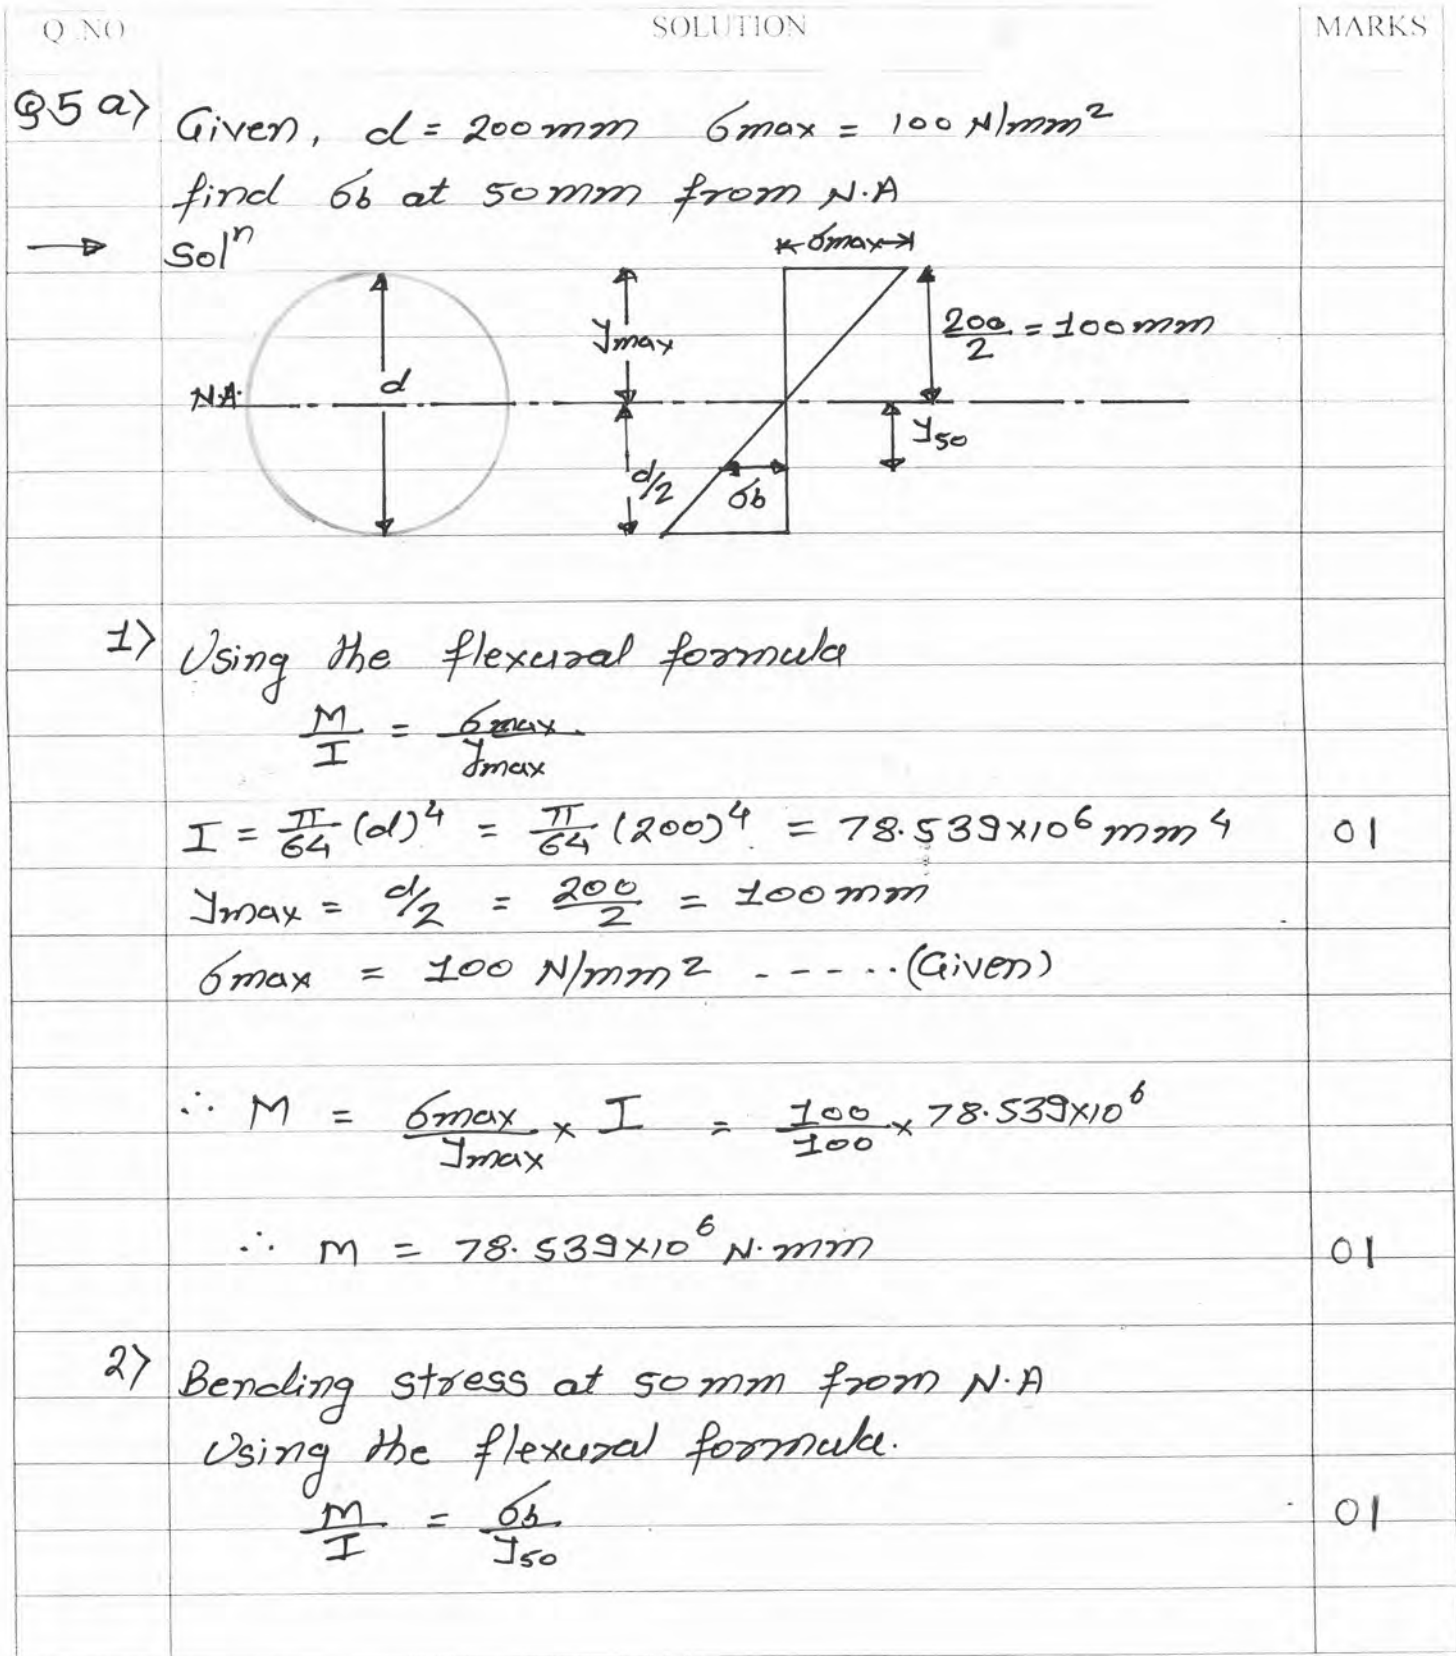 Q.NO SOLUTION MARKS
Q5 a) Given, d = 200 mm σmax = 100 N/mm²
find σb at 50 mm from N.A
→ Solⁿ
σmax
ymax
200/2 = 100 mm
N.A. d
y50
d/2 σb
1) Using the flexural formula
M/I = σmax/ymax
I = π/64 (d)⁴ = π/64 (200)⁴ = 78.539×10⁶ mm⁴ 01
ymax = d/2 = 200/2 = 100 mm
σmax = 100 N/mm² - - - - .. (Given)
∴ M = σmax/ymax × I = 100/100 × 78.539×10⁶
∴ M = 78.539×10⁶ N.mm 01
2) Bending stress at 50 mm from N.A
Using the flexural formula.
M/I = σb/y50 01